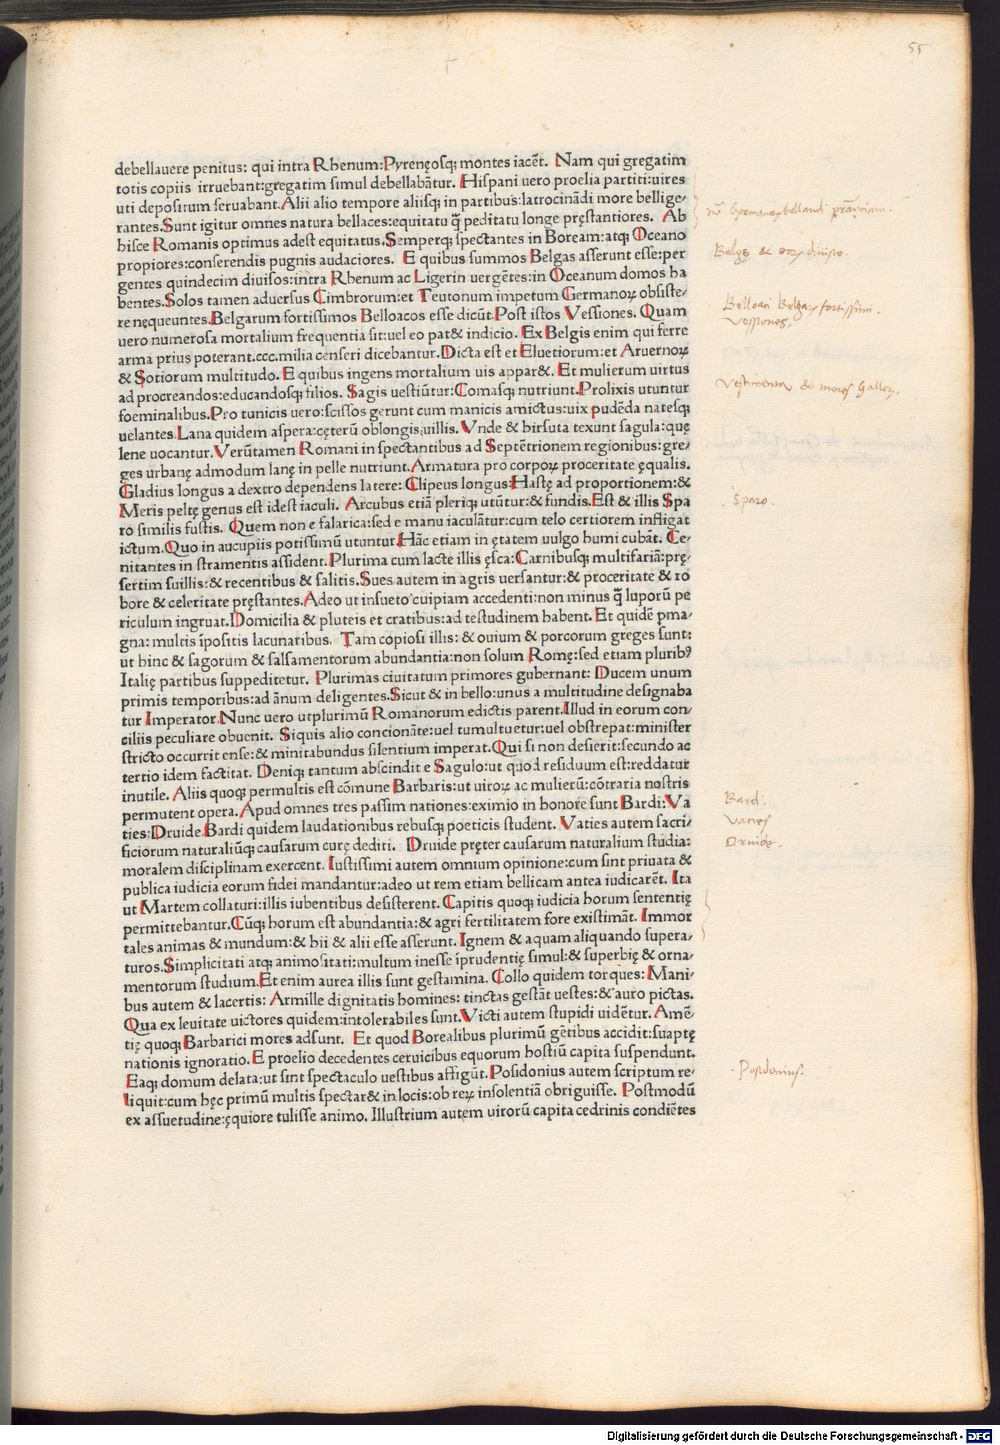 55
debellauere penitus: qui intra Rhenum:Pyrenęosq; montes iacēt. Nam qui gregatim
totis copiis irruebant:gregatim simul debellabātur. Hispani uero proelia partiti:uires
uti depositum seruabant.Alii alio tempore aliisq; in partibus:latrocinādi more bellige-
rantes.Sunt igitur omnes natura bellaces:equitatu q̄ peditatu longe pręstantiores. Ab
hisce Romanis optimus adest equitatus.Semperq; spectantes in Boream:atq; Oceano
propiores:conserendis pugnis audaciores. E quibus summos Belgas asserunt esse:per
gentes quindecim diuisos:intra Rhenum ac Ligerin uergētes:in Oceanum domos ha
bentes.Solos tamen aduersus Cimbrorum:et Teutonum impetum Germanoꝝ obsiste-
re nęqueuntes.Belgarum fortissimos Belloacos esse dicūt.Post istos Vessiones. Quam
uero numerosa mortalium frequentia sit:uel eo pat& indicio. Ex Belgis enim qui ferre
arma prius poterant.ccc.milia censeri dicebantur.Dicta est et Eluetiorum:et Aruernoꝝ
& Sotiorum multitudo.E quibus ingens mortalium uis appar&. Et mulierum uirtus
ad procreandos:educandosq; filios. Sagis uestiūtur:Comasq; nutriunt.Prolixis utuntur
foeminalibus.Pro tunicis uero:scissos gerunt cum manicis amictus:uix pudēda natesq;
uelantes.Lana quidem aspera:cęterū oblongis uillis. Vnde & hirsuta texunt sagula:quę
lene uocantur.Verūtamen Romani in spectantibus ad Septētrionem regionibus:gre-
ges urbanę admodum lanę in pelle nutriunt.Armatura pro corpoꝝ proceritate ęqualis.
Gladius longus a dextro dependens latere: Clipeus longus:Hastę ad proportionem:&
Meris peltę genus est idest iaculi. Arcubus etiā pleriq; utūtur:& fundis.Est & illis Spa
ro similis fustis. Quem non e falarica:sed e manu iaculātur:cum telo certiorem infligat
ictum.Quo in aucupiis potissimū utuntur.Hāc etiam in ętatem uulgo humi cubāt. Ce-
nitantes in stramentis assident.Plurima cum lacte illis ęsca:Carnibusq; multifariā:prę-
sertim suillis:& recentibus & salitis.Sues autem in agris uersantur:& proceritate & ro
bore & celeritate pręstantes.Adeo ut insueto cuipiam accedenti:non minus q̄ luporū pe
riculum ingruat.Domicilia & pluteis et cratibus:ad testudinem habent.Et quidē p̱ma-
gna: multis īpositis lacunaribus. Tam copiosi illis: & ouium & porcorum greges sunt:
ut hinc & sagorum & salsamentorum abundantia:non solum Romę:sed etiam pluribꝰ
Italię partibus suppeditetur. Plurimas ciuitatum primores gubernant: Ducem unum
primis temporibus:ad ānum deligentes.Sicut & in bello:unus a multitudine designaba
tur Imperator.Nunc uero utplurimū Romanorum edictis parent.Illud in eorum con-
ciliis peculiare obuenit. Siquis alio concionāte:uel tumultuetur:uel obstrepat:minister
stricto occurrit ense:& minitabundus silentium imperat.Qui si non desierit:secundo ac
tertio idem factitat. Deniq; tantum abscindit e Sagulo:ut quod residuum est:reddatur
inutile. Aliis quoq; permultis est cōmune Barbaris:ut uiroꝝ ac mulierū:cōtraria nostris
permutent opera.Apud omnes tres passim nationes:eximio in honore sunt Bardi:Va
ties:Druide.Bardi quidem laudationibus rebusq; poeticis student. Vaties autem sacri-
ficiorum naturaliūq; causarum curę dediti. Druide pręter causarum naturalium studia:
moralem disciplinam exercent. Iustissimi autem omnium opinione:cum sint priuata &
publica iudicia eorum fidei mandantur:adeo ut rem etiam bellicam antea iudicarēt. Ita
ut Martem collaturi:illis iubentibus desisterent. Capitis quoq; iudicia horum sententię
permittebantur.Cūq; horum est abundantia:& agri fertilitatem fore existimāt. Immor
tales animas & mundum:& hii & alii esse asserunt. Ignem & aquam aliquando supera-
turos.Simplicitati atq; animositati:multum inesse īprudentię simul:& superbię & orna-
mentorum studium.Et enim aurea illis sunt gestamina. Collo quidem torques: Mani
bus autem & lacertis: Armille dignitatis homines: tinctas gestāt uestes:& auro pictas.
Qua ex leuitate uictores quidem:intolerabiles sunt.Victi autem stupidi uidētur. Amē
tię quoq; Barbarici mores adsunt. Et quod Borealibus plurimū gētibus accidit:suaptę
nationis ignoratio.E proelio decedentes ceruicibus equorum hostiū capita suspendunt.
Eaq; domum delata:ut sint spectaculo uestibus affigūt.Posidonius autem scriptum re-
liquit:cum hęc primū multis spectar& in locis:ob reꝝ insolentiā obriguisse. Postmodū
ex assuetudine:ęquiore tulisse animo. Illustrium autem uirorū capita cedrinis condiētes
Belgę & eoꝝ diuisio.
Belloaci Belgaꝝ fortissimi.
Vessiones.
Vestimenta & mores Galloꝝ.
Sparo.
Bardi.
Vaties
Druide.
Posidonius.
Digitalisierung gefördert durch die Deutsche Forschungsgemeinschaft - DFG